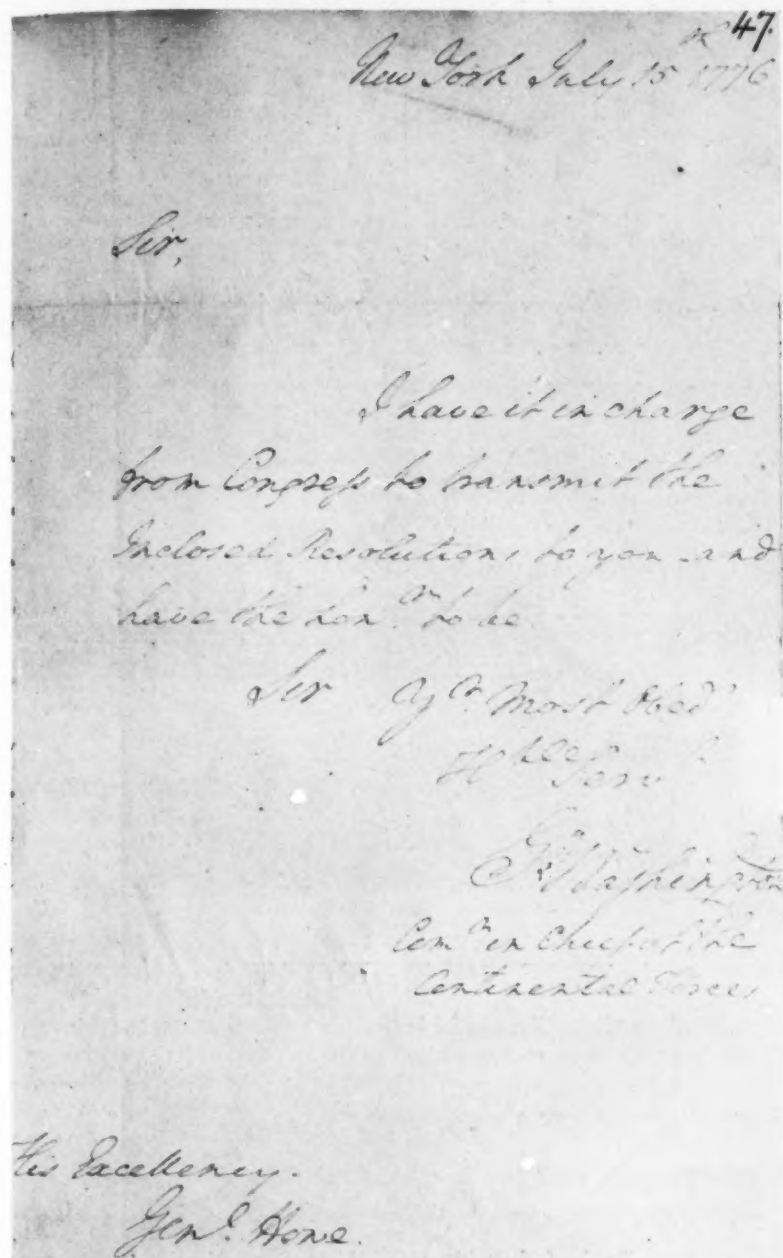 47.
New York July 15th 1776
Sir,
I have it in charge
from Congress to transmit the
Inclosed Resolutions to you and
have the honr to be
Sir Yr Most Obedt
Hble Servt
Go Washington
Comr in Chief of the
Continental Forces
His Excellency.
Genl. Howe.